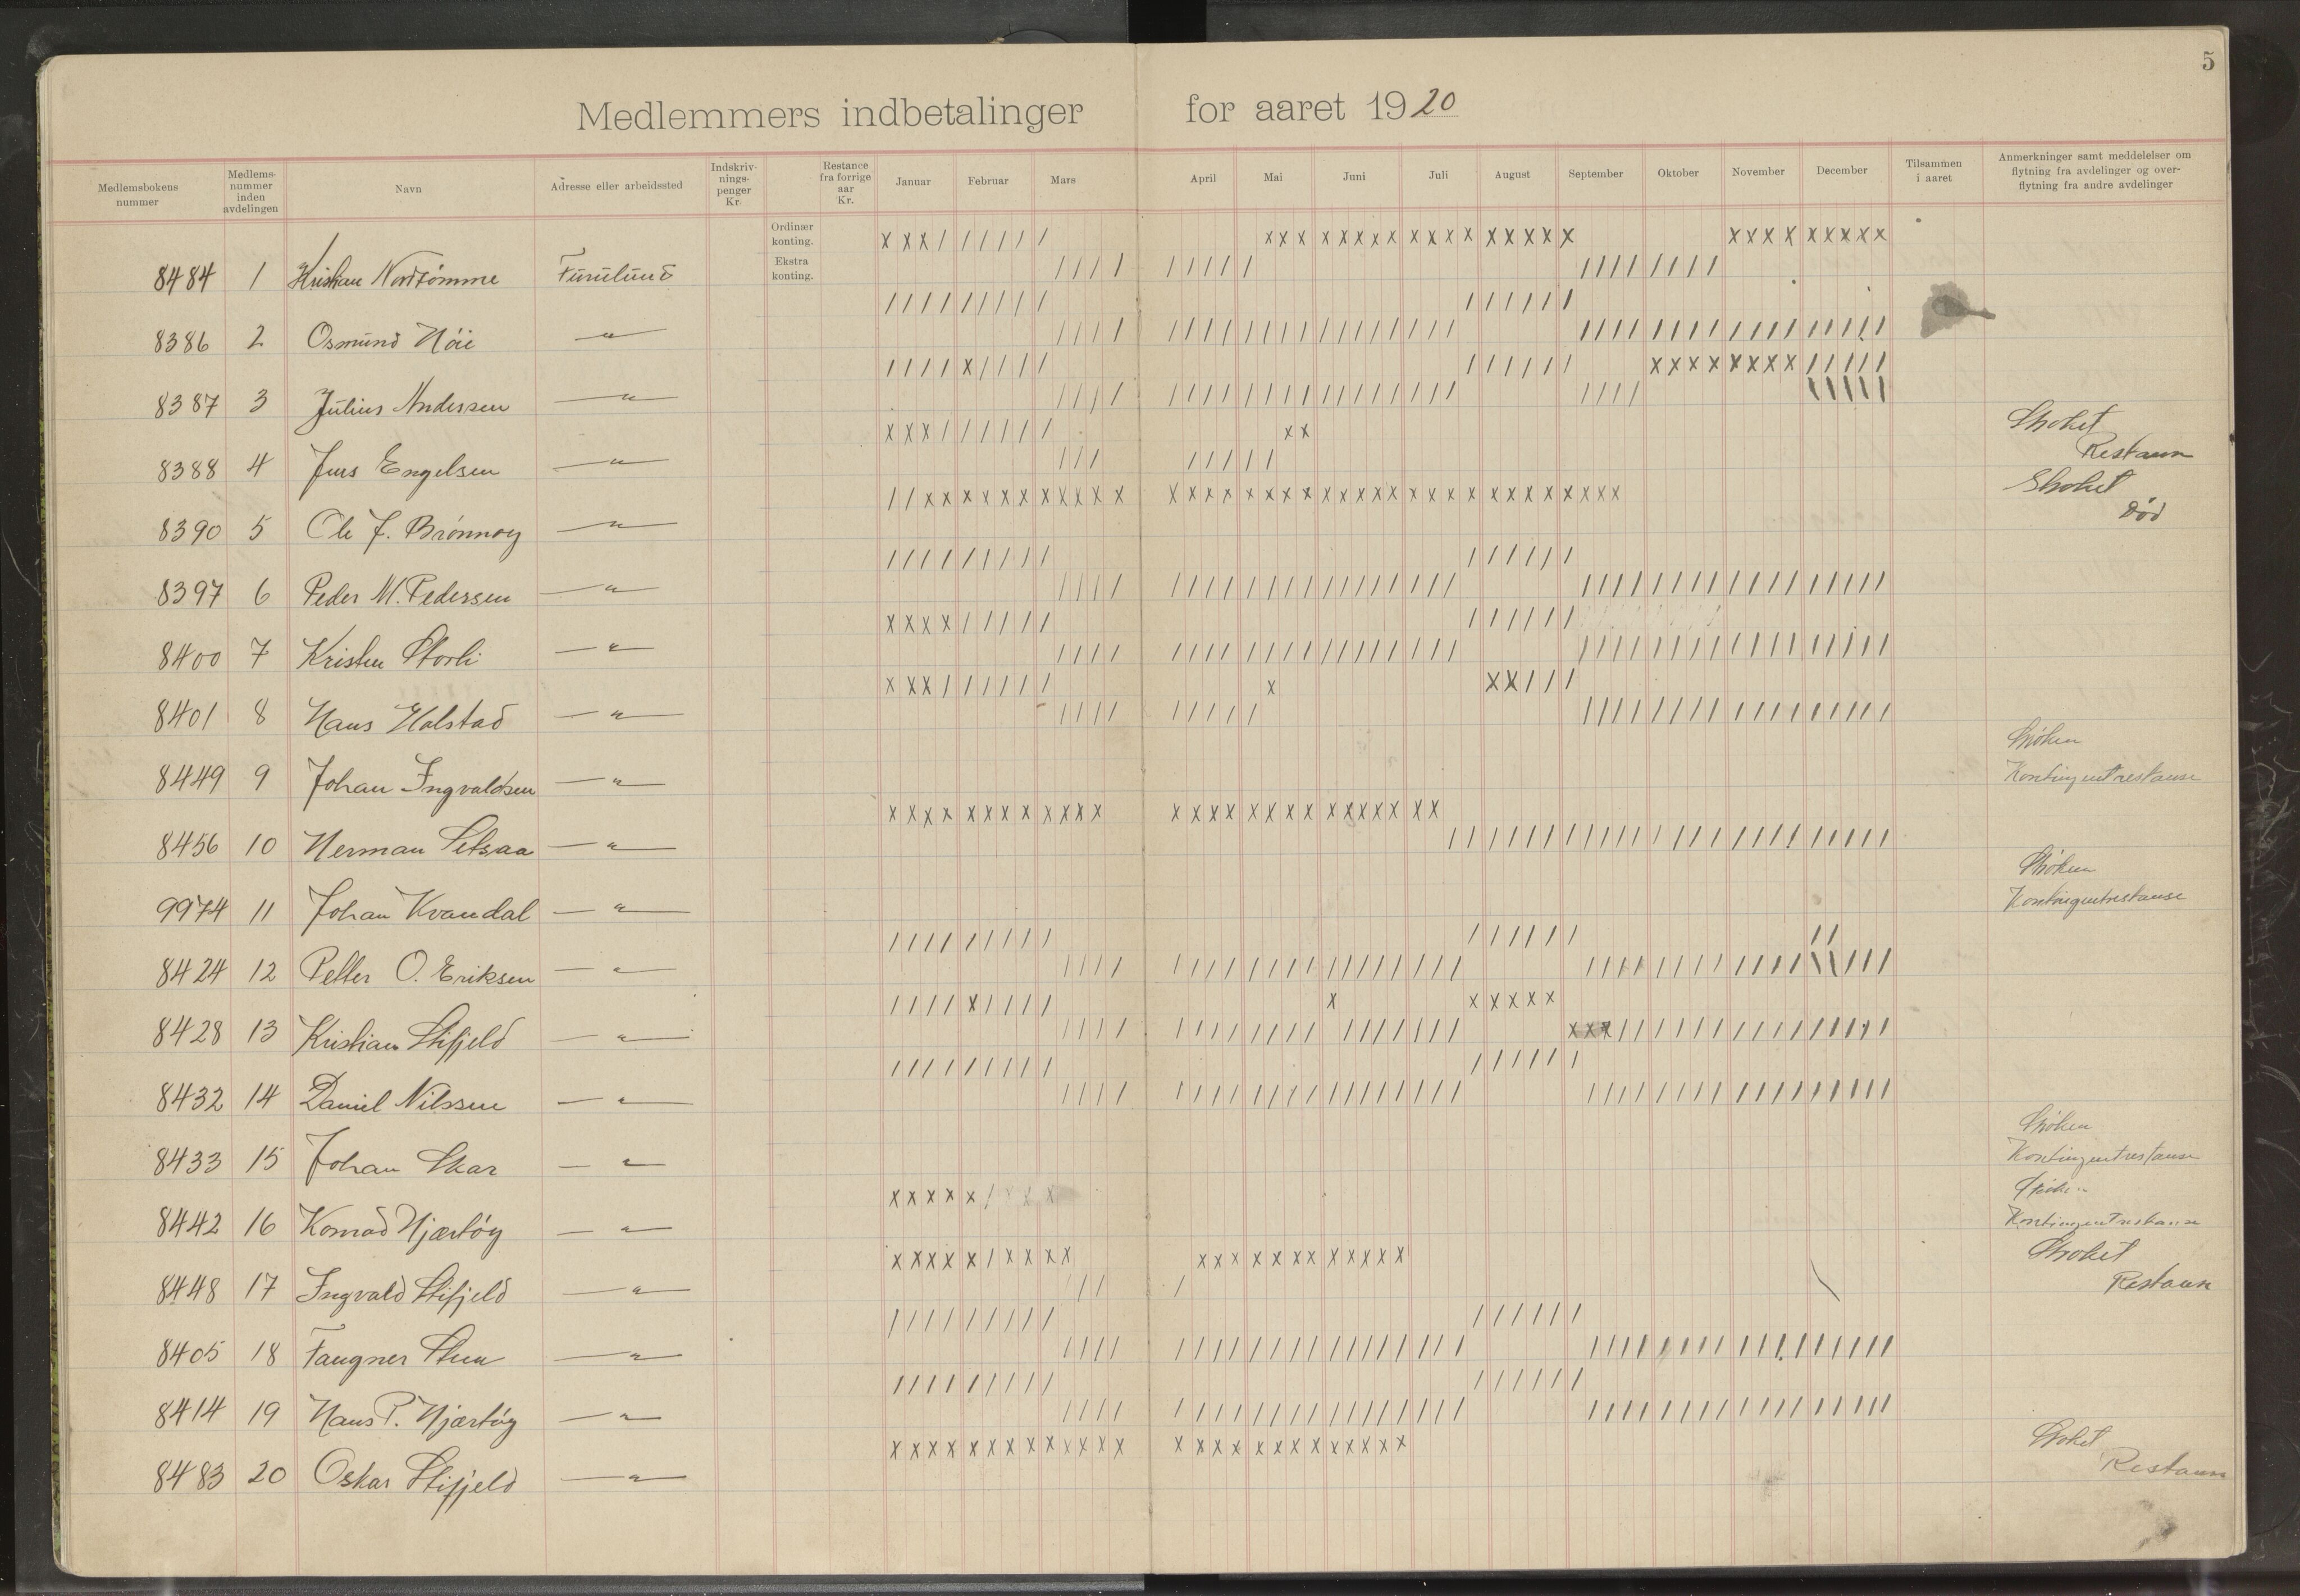 5
Medlemmers indbetalinger for aaret 1920
Medlemsbokens nummer
Medlems-nummer inden avdelingen
Navn
Adresse eller arbeidssted
Indskriv-nings-penger Kr.
Restance fra forrige aar Kr.
Januar Februar Mars April Mai Juni Juli August September Oktober November December
Tilsammen i aaret
Anmerkninger samt meddelelser om flytning fra avdelinger og over-flytning fra andre avdelinger
Ordinær konting. x x x / / / / / / x x x x x x x x x x x x x x x x x x x x x x x x x x
Ekstra konting.
8484 1 Kristian Nordtømme Furulund
8386 2 Osmund Høie — " —
8387 3 Julius Andersen — " —
8388 4 Jens Engelsen — " — Strøket
Restanse
8390 5 Ole J. Brønnøy — " — Strøket
Død
8397 6 Peder M. Pedersen — " —
8400 7 Kristen Storli — " —
8401 8 Hans Halstad — " —
8449 9 Johan Ingvaldsen — " — Strøken
Kontingentrestanse
8456 10 Herman Setsaa — " —
9974 11 Johan Kvandal — " — Strøken
Kontingentrestanse
8424 12 Petter O. Eriksen — " —
8428 13 Kristian Stifjeld — " —
8432 14 Daniel Nilssen — " —
8433 15 Johan Skar — " — Strøken
Kontingentrestanse
8442 16 Konrad Hjartøy — " — Strøken
Kontingentrestanse
8448 17 Ingvald Stifjeld — " — Strøket
Restanse
8405 18 Fangner Steen — " —
8414 19 Hans P. Hjartøy — " —
8483 20 Oskar Stifjeld — " — Strøket
Restanse